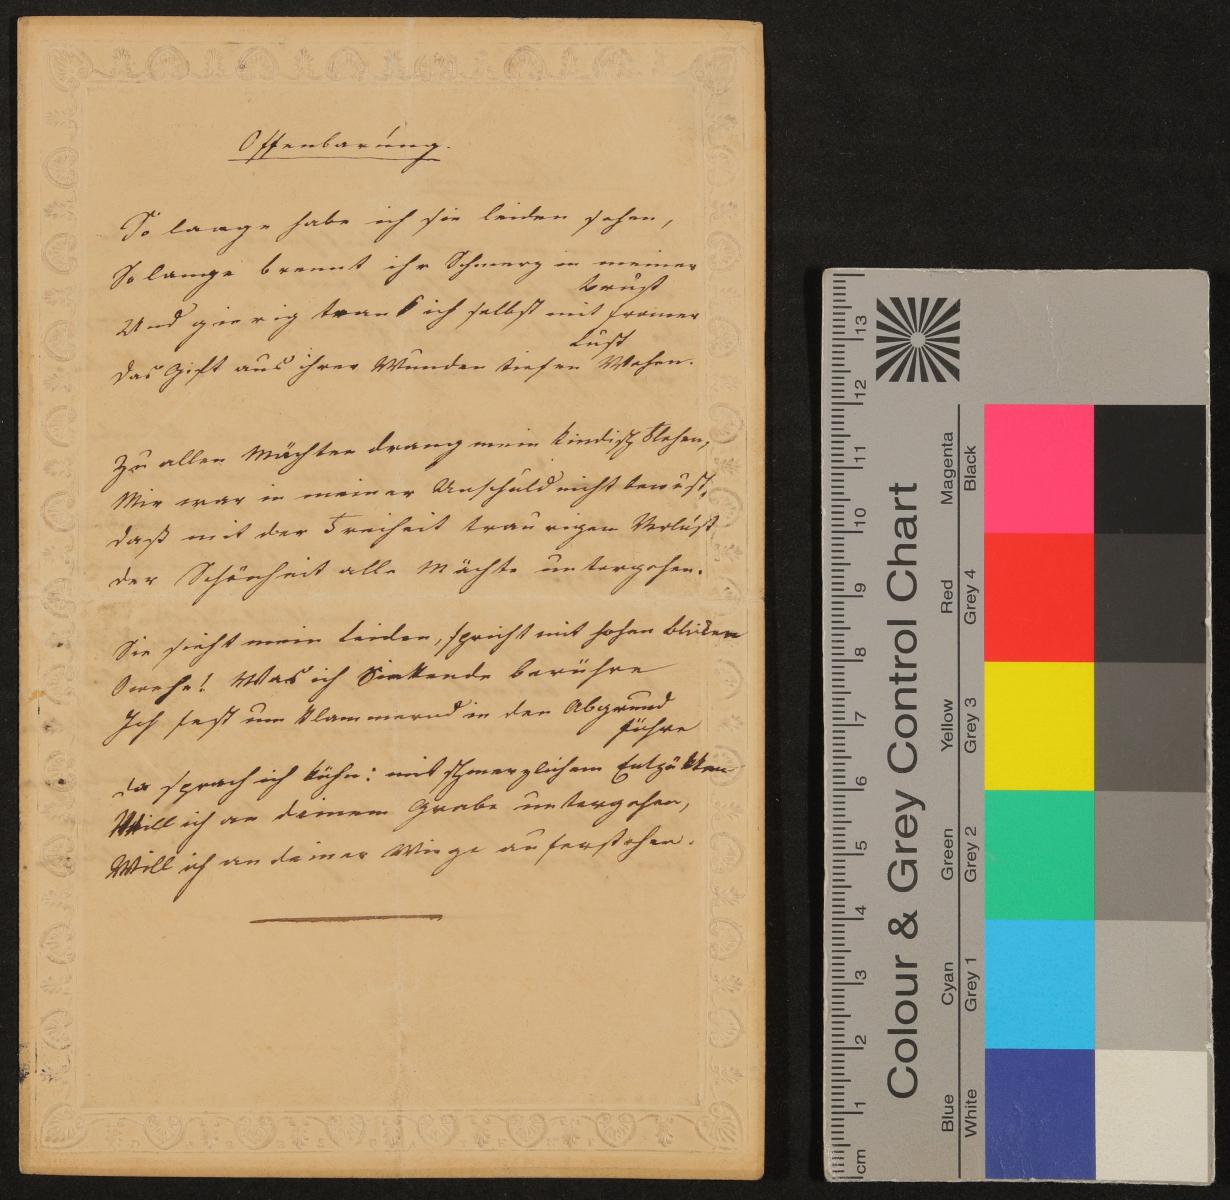 Offenbarung.
So lange habe ich sie leiden sehen,
So lange brennt ihr Schmerz in meiner
Brust
Und gierig trank ich selbst mit fromer
Lust
Das Gift aus ihrer Wunden tiefen Wehen.
Zu allen Mächten drang mein kindisch Flehen,
Mir war in meiner Unschuld nicht bewust,
Daß mit der Freiheit traurigen Verlust
Der Schönheit alle Mächte untergehen.
Sie sieht mein Leiden, spricht mit hohen Blicken
O wehe! Was ich Sinkende berühre
Ich fest um klammernd in den Abgrund
führe
Da sprach ich kühn: mit schmerzlichem Entzükken
Will ich an deinem Grabe untergehen,
Will ich an deiner Wiege auferstehen.
cm 1 2 3 4 5 6 7 8 9 10 11 12 13
Colour & Grey Control Chart
Blue Cyan Green Yellow Red Magenta
White Grey 1 Grey 2 Grey 3 Grey 4 Black